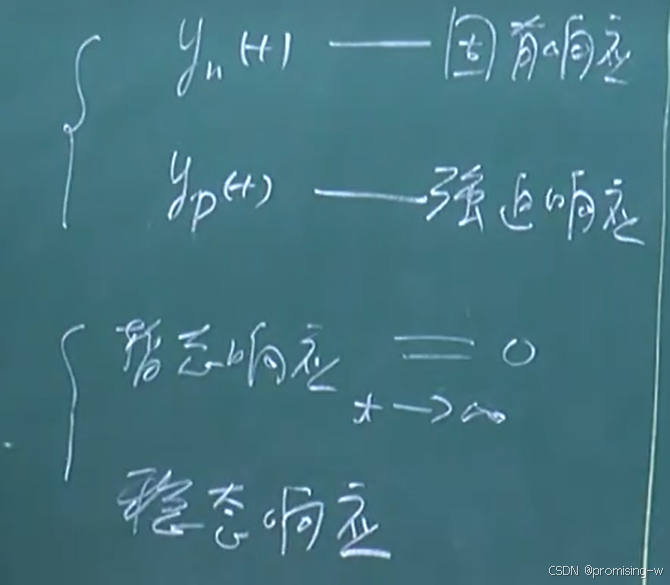 yn(t) — 固有响应
yp(t) — 强迫响应
暂态响应 = 0
t→∞
稳态响应
CSDN @promising-w